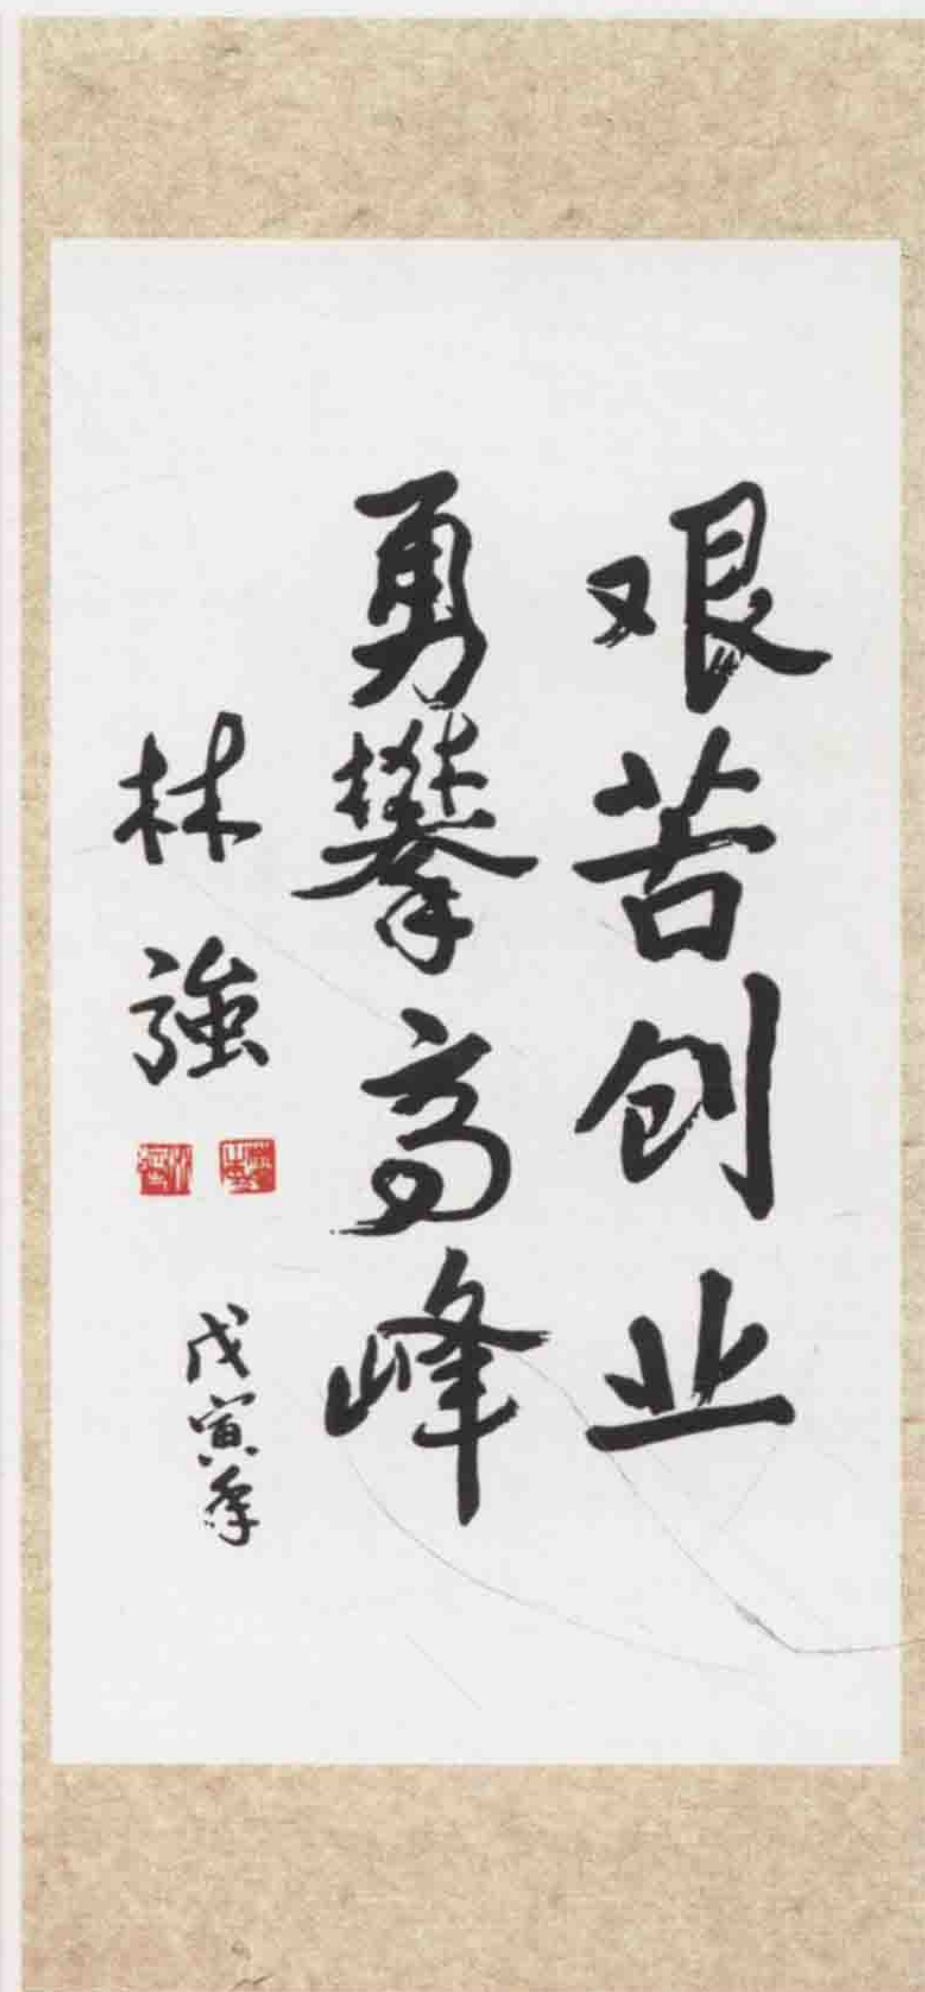 艰苦创业
勇攀高峰
林強
戊寅年